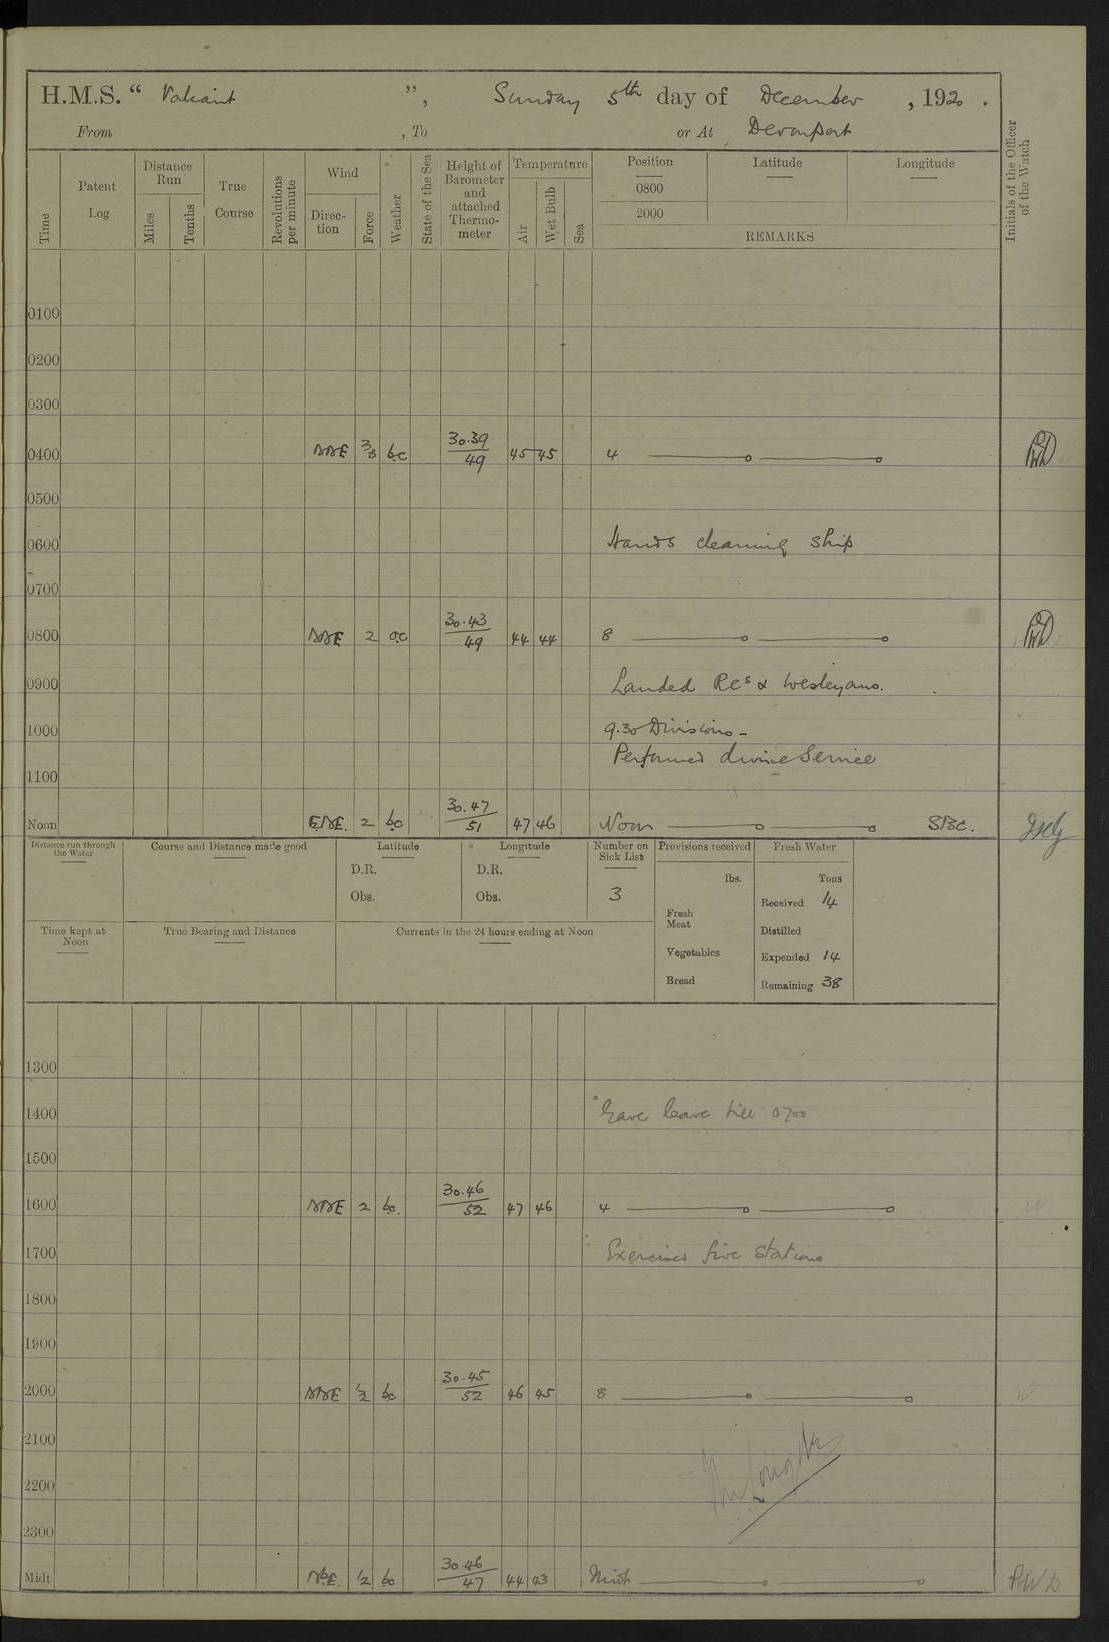 H.M.S. " Valiant ", Sunday 5th day of December, 1920.
From , To or At Devonport
Time
Patent Log
Distance Run
Miles
Tenths
True Course
Revolutions per minute
Wind
Direction
Force
Weather
State of the Sea
Height of Barometer and attached Thermometer
Temperature
Air
Wet Bulb
Sea
Position
Latitude
Longitude
0800
2000
REMARKS
Initials of the Officer of the Watch
0100
0200
0300
0400 NNE 2/3 bc 30.39/49 45 45 4
0500
0600 Hands cleaning ship
0700
0800 NNE 2 oc 30.43/49 44 44 8
0900 Landed RCs & Wesleyans.
1000 9.30 Divisions -
Performed divine Service
1100
Noon ENE. 2 bc 30.47/51 47 46 Noon
Distance run through the Water
Course and Distance made good
Latitude
D.R.
Obs.
Longitude
D.R.
Obs.
Number on Sick List
3
Provisions received
lbs.
Fresh Meat
Vegetables
Bread
Fresh Water
Tons
Received 14
Distilled
Expended 14
Remaining 38
Time kept at Noon
True Bearing and Distance
Currents in the 24 hours ending at Noon
1300
1400 Gave leave till 0700
1500
1600 NNE 2 bc. 30.46/52 47 46 4
1700 Exercised fire stations
1800
1900
2000 NNE 1/2 bc 30.45/52 46 45 8
2100
2200
2300
Midt 1/2 bc 30.46/47 44 43 Midt